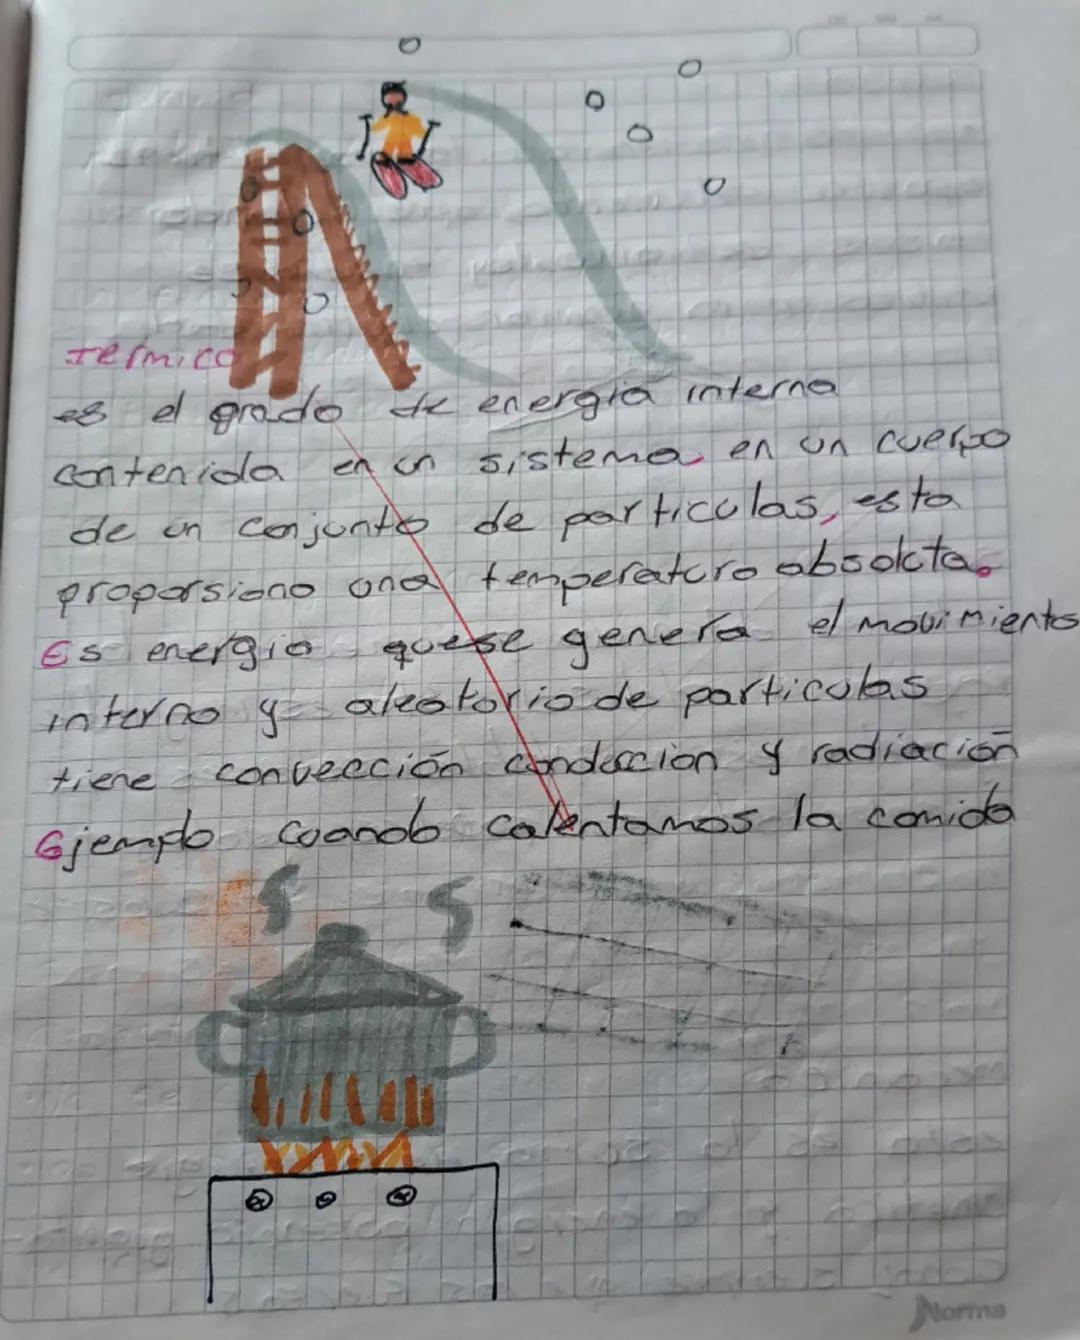 termico
es el grado de energia interna
contenida en un sistema, en un cuerpo
de un conjunto de particulas, esta
proporsiona una temperatura absoluta.
Es energia quese genera el movimiento
interno y aleatorio de particulas
tiene convección conduccion y radiación
Ejemplo cuando calentamos la comida
Norma